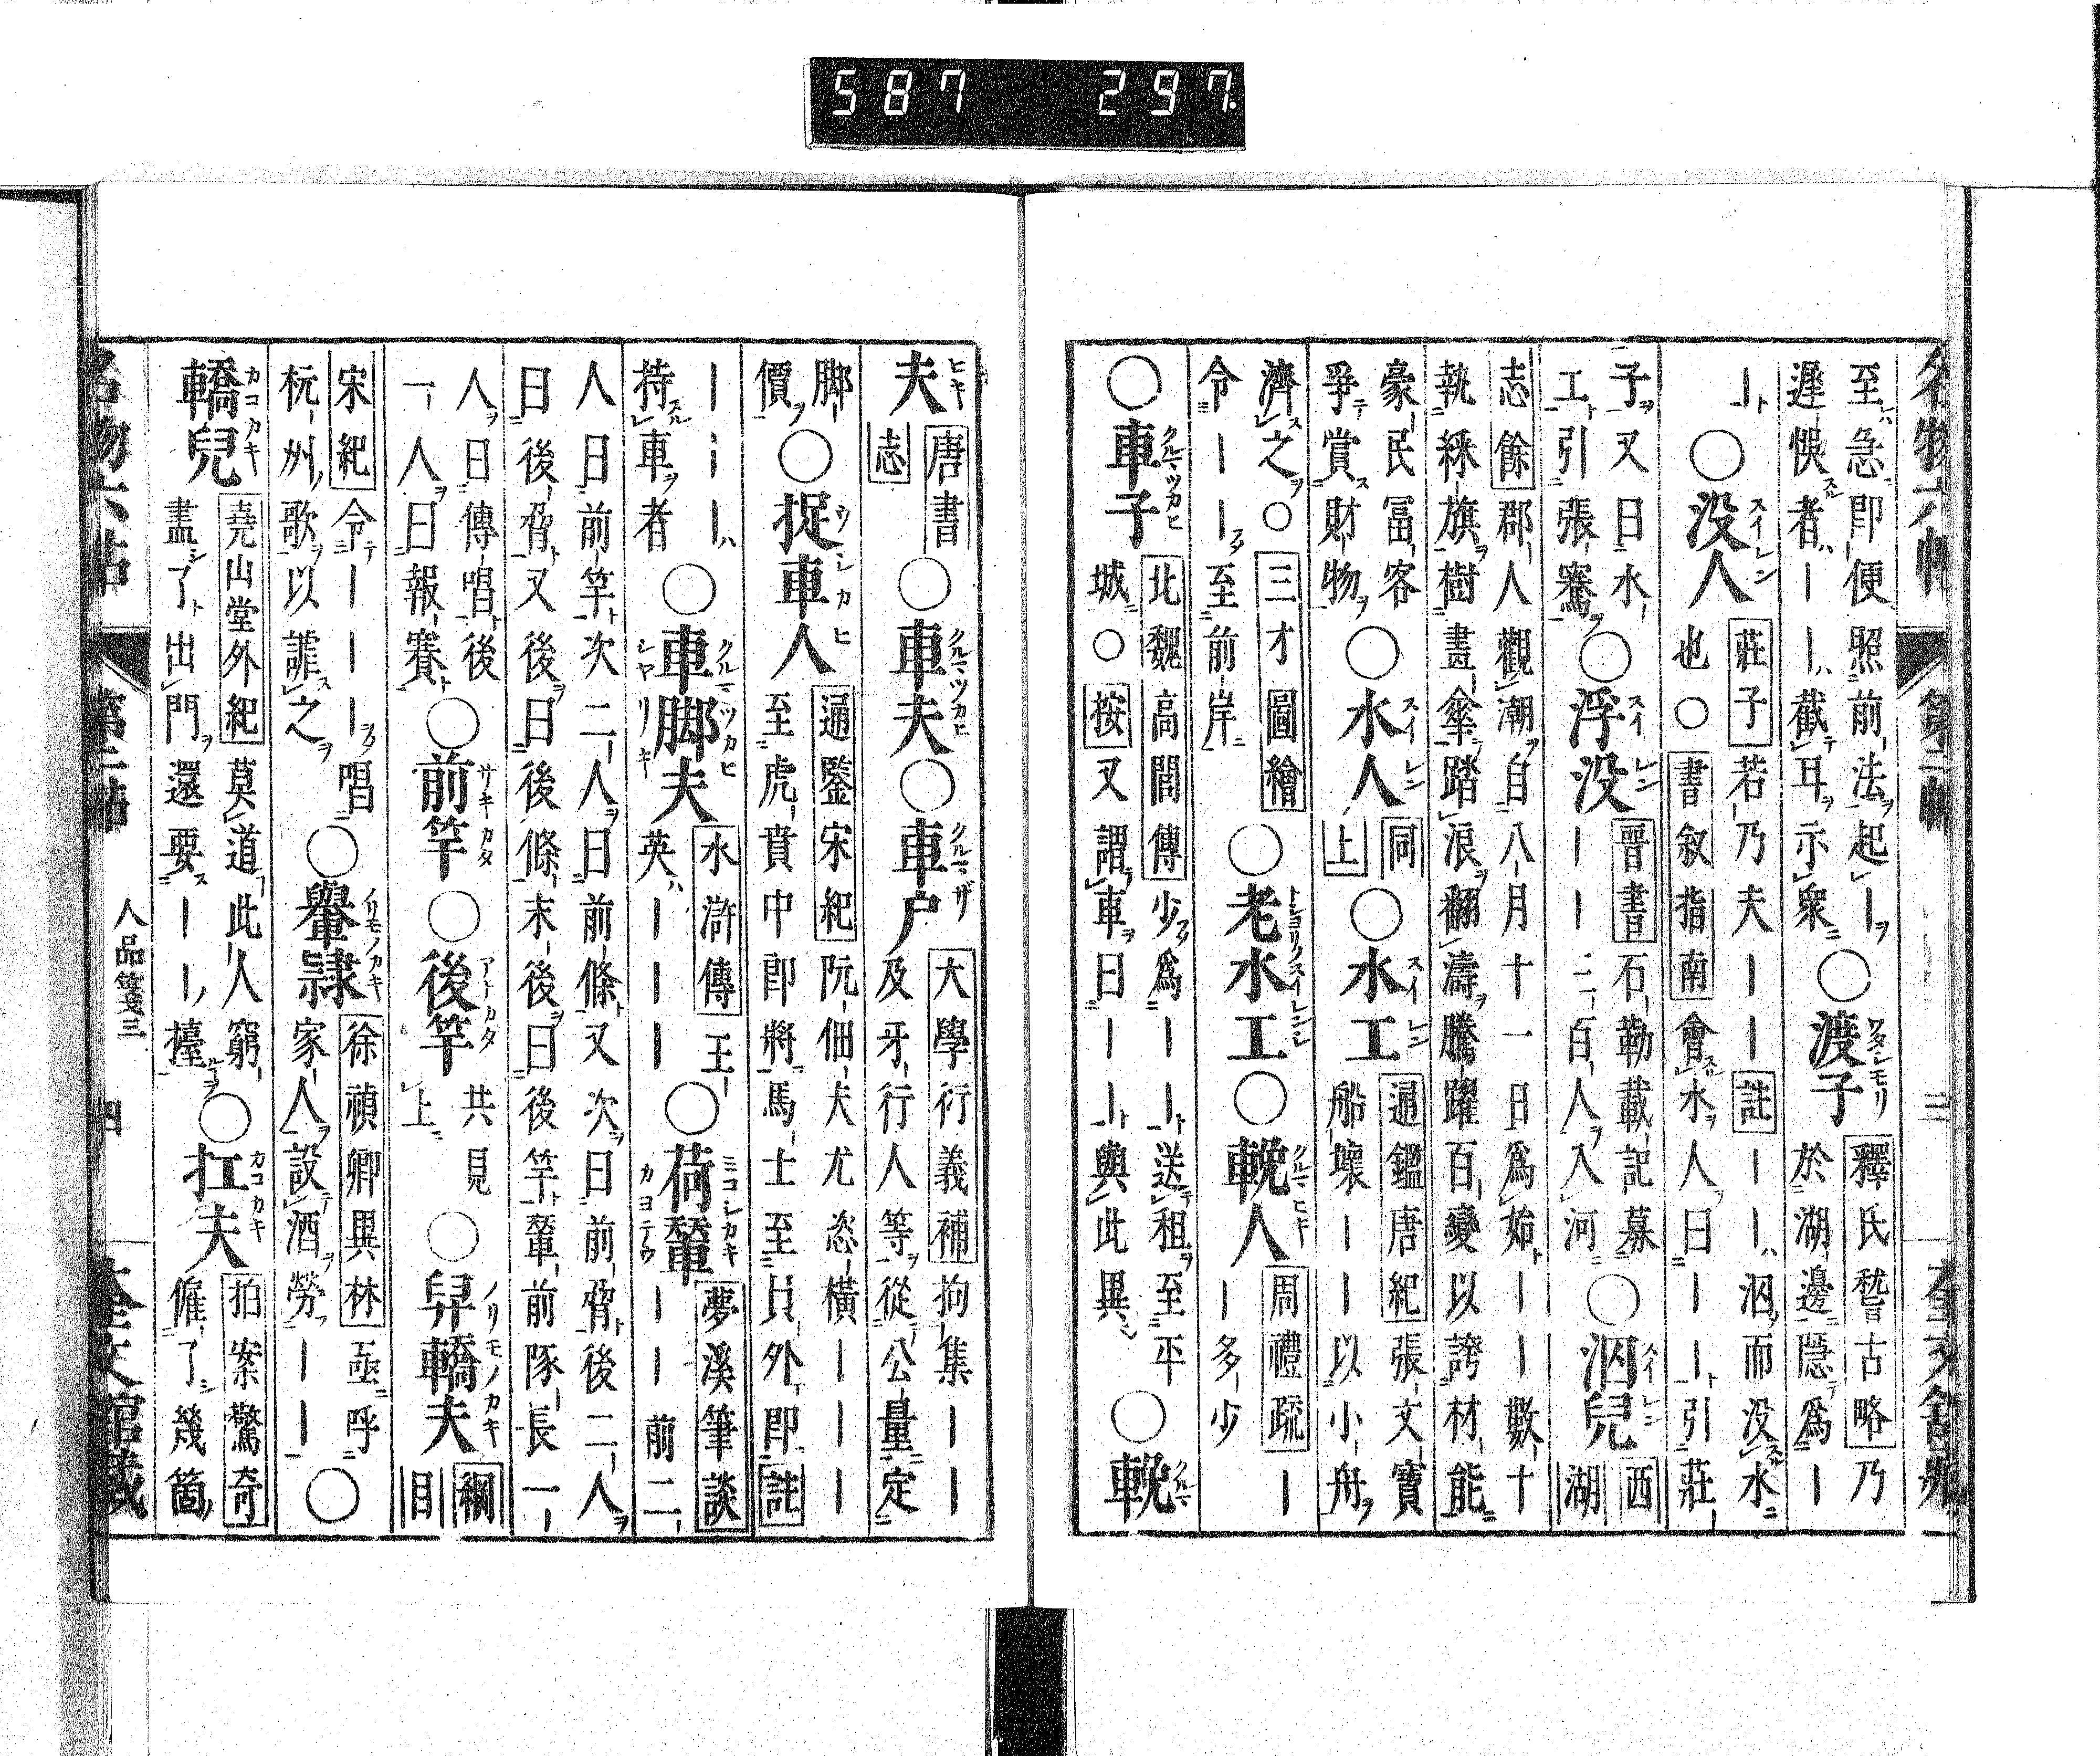 587 297.
名物六帖 第二帖 三 奎文舘藏
至急即便照前法起｜
遲悞者｜｜截耳示衆○渡子釋氏稽古略乃
於湖邊隱爲｜
｜○没人莊子若乃夫｜｜註｜｜泅而没水
也○書叙指南會水人曰｜｜引莊
子又曰水
工引張騫○浮没晉書石勒載記募
｜｜二百人入河○泅兒西
湖
志餘郡人觀潮自八月十一日爲始｜｜數十
執綵旗樹畫傘踏浪翻濤騰躍百變以誇材能
豪民冨客
爭賞財物○水人同
上○水工通鑑唐紀張文寶
船壊｜｜以小舟
濟之○三才圖繪
令｜｜至前岸○老水工○輓人周禮疏｜
｜多少
○車子北魏高閭傳少爲｜｜送租至平
城○按又謂車曰｜｜與此異○輓
夫唐書
志○車夫○車户大學衍義補拘集｜｜
及牙行人等從公量定
脚
價○捉車人通鑒宋紀阮佃夫尤恣橫｜｜
至虎賁中即將馬士至員外即註
｜｜｜
持車者○車脚夫水滸傳王
英｜｜｜○荷輦夢溪筆談
｜｜前二
人曰前竿次二人曰前條又次曰前脅後二人
曰後脅又後曰後條末後曰後竿輦前隊長一
人曰傳唱後
一人曰報賽○前竿○後竿共見
上○舁轎夫綱
目
宋紀令｜｜｜唱
杭州歌以誹之○轝隷徐禎卿異林亟呼
家人設酒勞｜｜○
轎兒堯山堂外紀莫道此人窮
盡了出門還要｜｜擡○扛夫拍案驚奇
僱了幾箇
名物六帖 第二帖 人品箋三 四 奎文舘藏